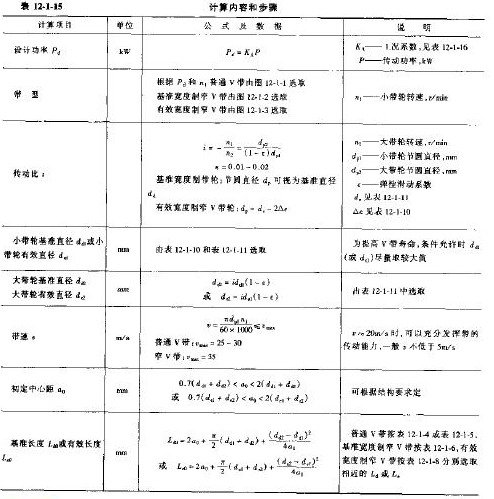 表 12-1-15 计算内容和步骤
计算项目 单位 公式及数据 说明
设计功率 P_d kW P_d = K_A P K_A——工况系数,见表 12-1-16
P——传动功率,kW
带型 根据 P_d 和 n₁ 普通 V 带由图 12-1-1 选取
基准宽度制窄 V 带由图 12-1-2 选取
有效宽度制窄 V 带由图 12-1-3 选取
n₁——小带轮转速,r/min
传动比 i
i = n₁/n₂ = d_p2/((1-ε)d_p1)
ε = 0.01~0.02
基准宽度制带轮:节圆直径 d_p 可视为基准直径
d_d
有效宽度制窄 V 带轮:d_p = d_e - 2Δe
n₂——大带轮转速,r/min
d_p1——小带轮节圆直径,mm
d_p2——大带轮节圆直径,mm
ε——弹性滑动系数
d_e 见表 12-1-11
Δe 见表 12-1-10
小带轮基准直径 d_d1 或小
带轮有效直径 d_e1
mm
由表 12-1-10 和表 12-1-11 选取
为提高 V 带寿命,条件允许时 d_d1
(或 d_e1)尽量取较大值
大带轮基准直径 d_d2
大带轮有效直径 d_e2
mm
d_d2 = id_d1(1-ε)
或 d_e2 = id_e1(1-ε)
由表 12-1-11 中选取
带速 v m/s
v = πd_p1n₁/(60×1000) ≤ v_max
普通 V 带:v_max = 25~30
窄 V 带:v_max = 35
v≈20m/s 时,可以充分发挥带的
传动能力,一般 v 不低于 5m/s
初定中心距 a₀ mm
0.7(d_d1 + d_d2) < a₀ < 2(d_d1 + d_d2)
或 0.7(d_e1 + d_e2) < a₀ < 2(d_e1 + d_e2)
可根据结构要求定
基准长度 L_d0 或有效长度
L_e0
mm
L_d0 = 2a₀ + π/2 (d_d1 + d_d2) + (d_d2 - d_d1)²/4a₀
或 L_e0 = 2a₀ + π/2 (d_e1 + d_e2) + (d_e2 - d_e1)²/4a₀
普通 V 带按表 12-1-4 或表 12-1-5,
基准宽度制窄 V 带按表 12-1-6,有效
宽度制窄 V 带按表 12-1-8 分别选取
相近的 L_d 或 L_e